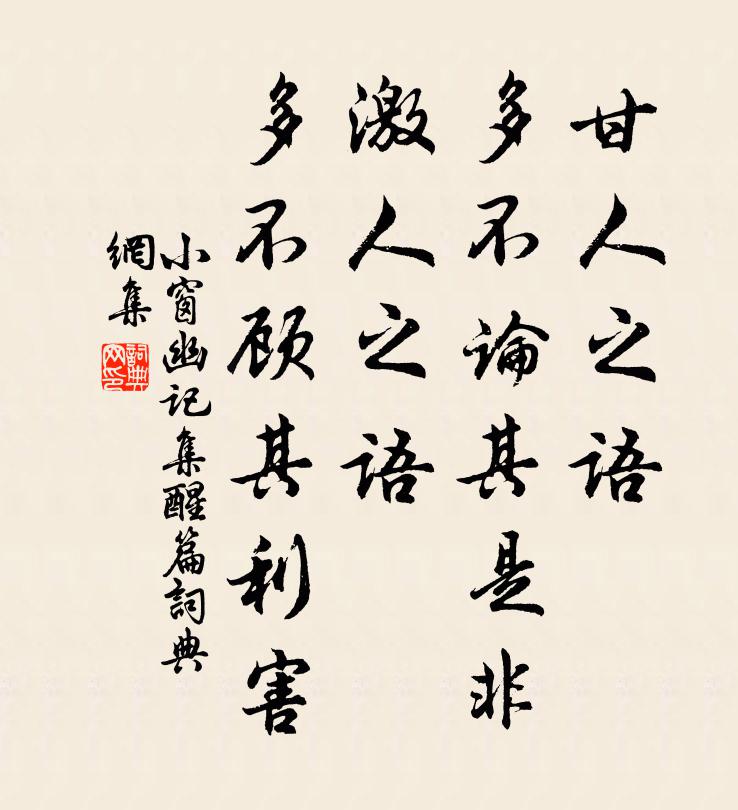 甘人之语
多不論其是非
激人之语
多不顾其利害
小窗幽记集醒篇词典
網集
詞典
网印